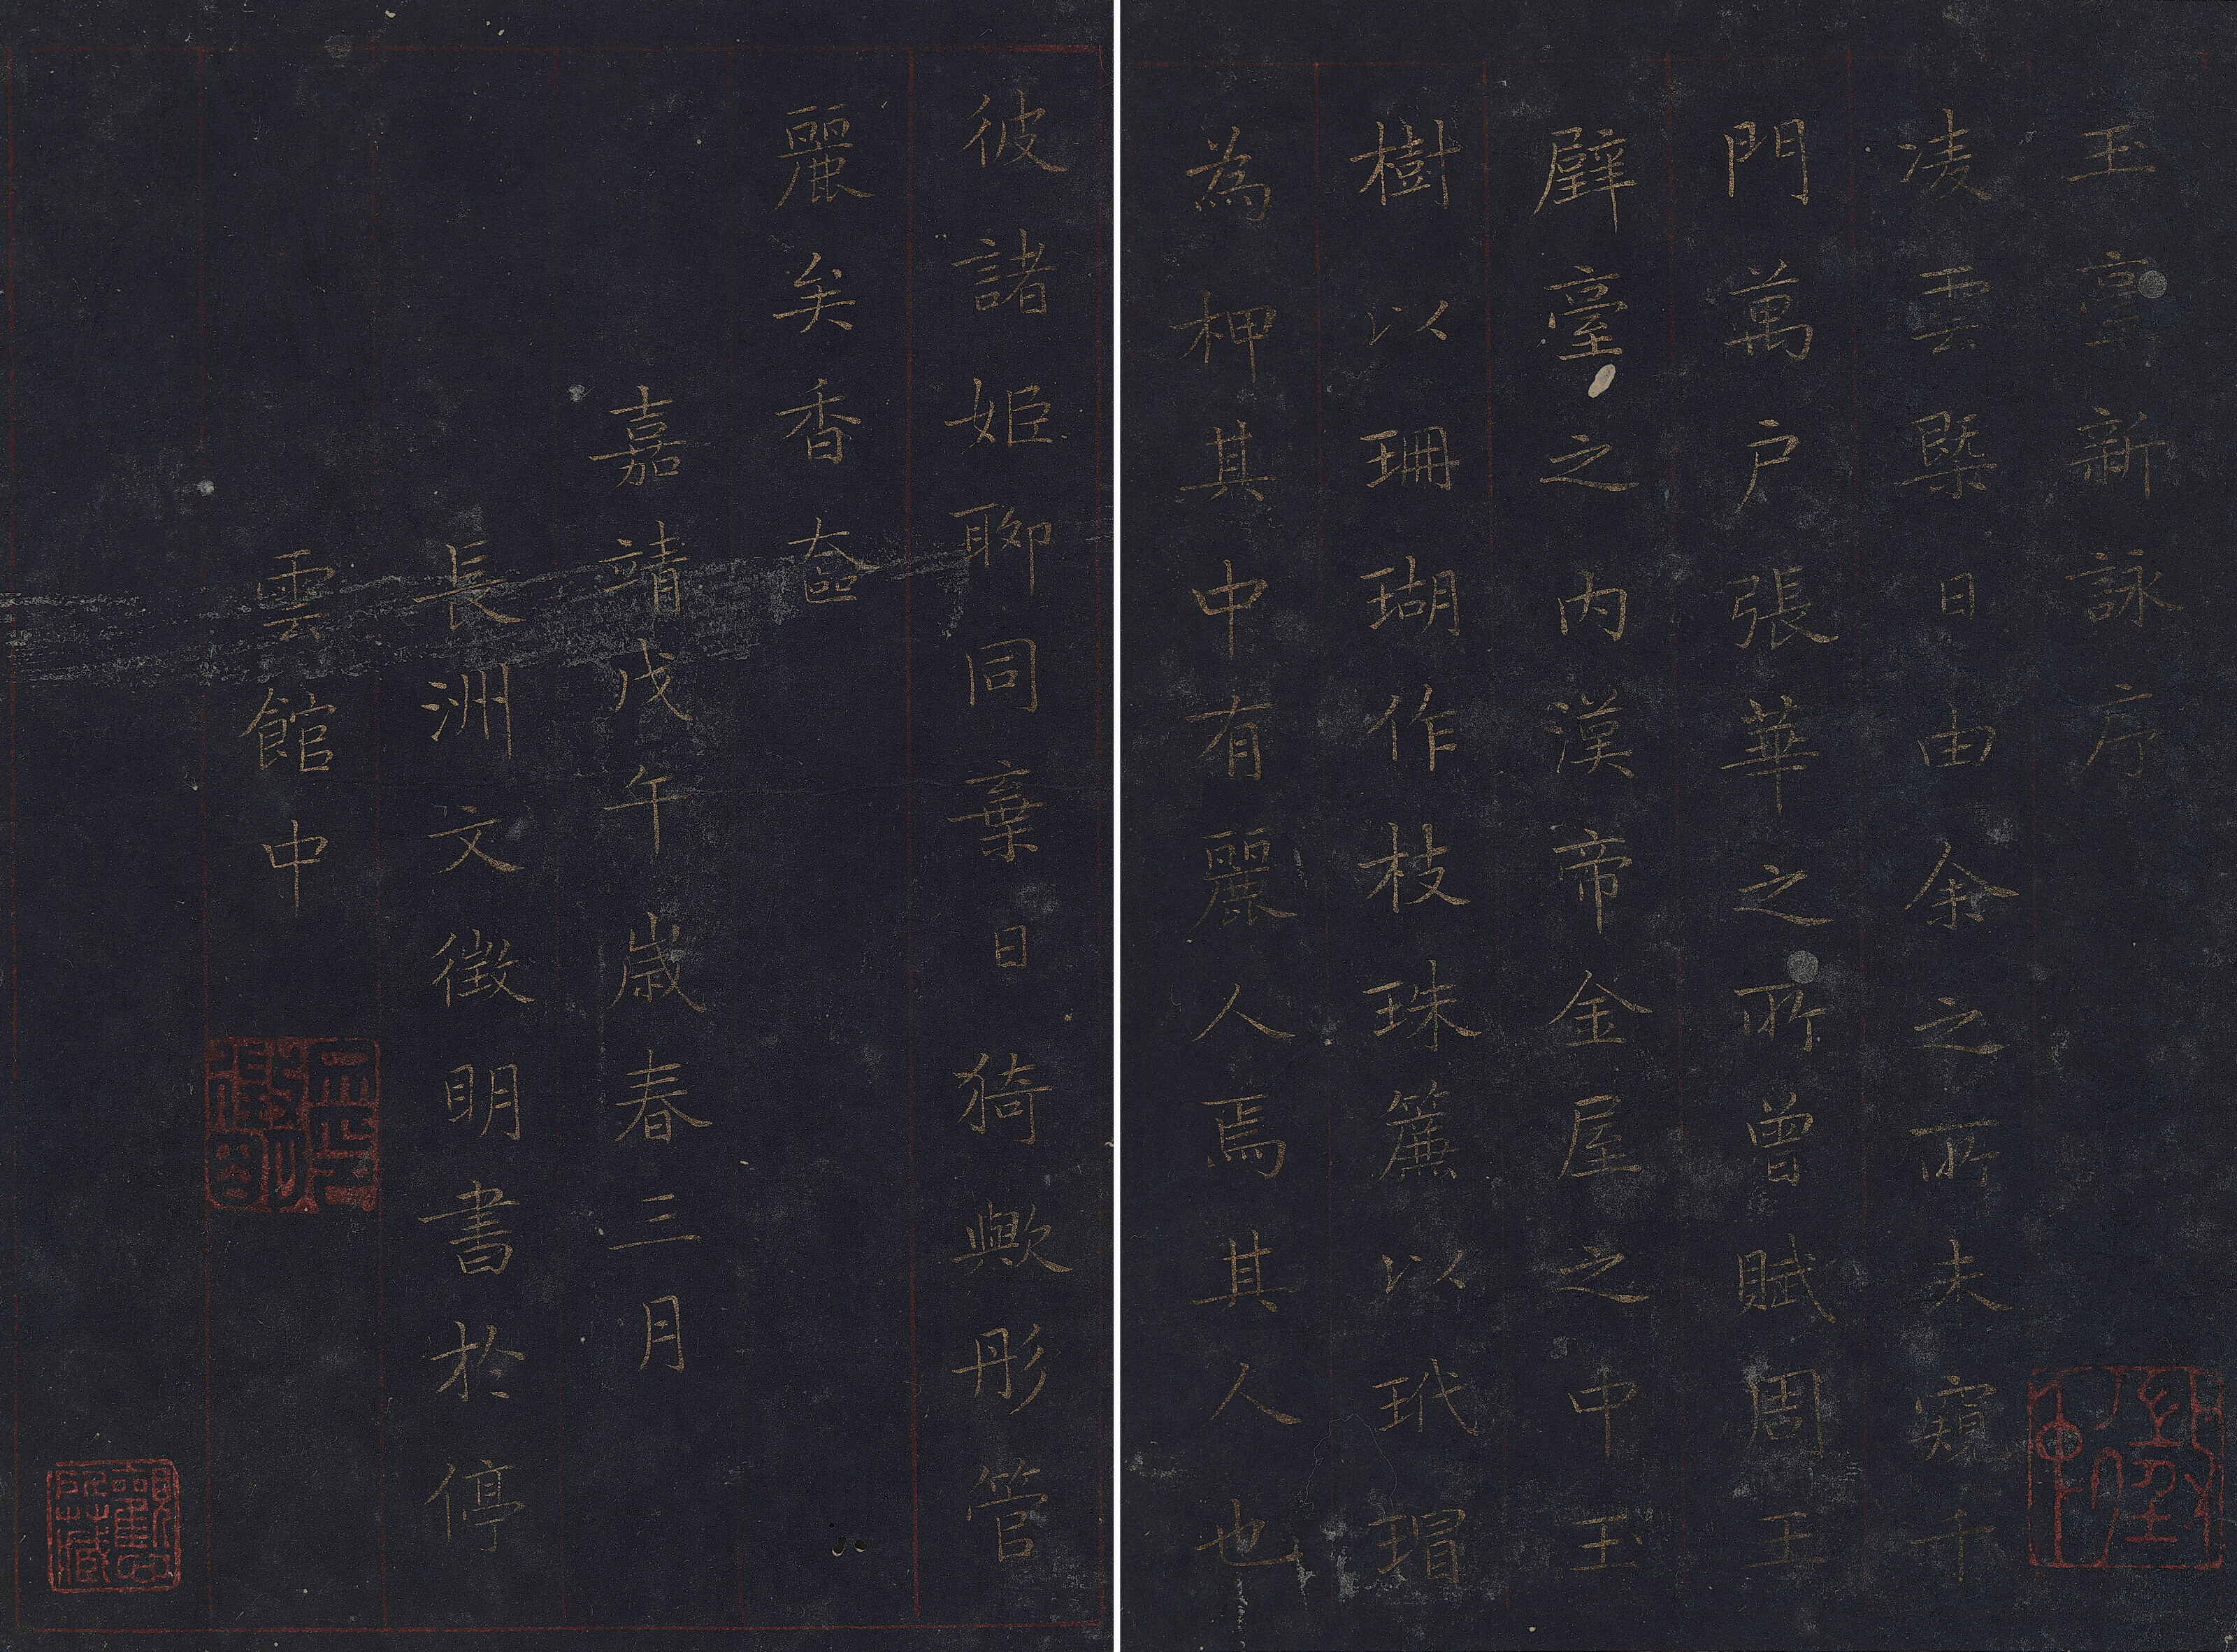 玉臺新詠序
凌雲槩日由余之所未窺千
門萬户張華之所曾賦周王
璧臺之内漢帝金屋之中玉
樹以珊瑚作枝珠簾以玳瑁
為柙其中有麗人焉其人也
彼諸姬聊同棄日猗歟彤管
麗矣香奩
嘉靖戊午歲春三月
長洲文徵明書於停
雲館中